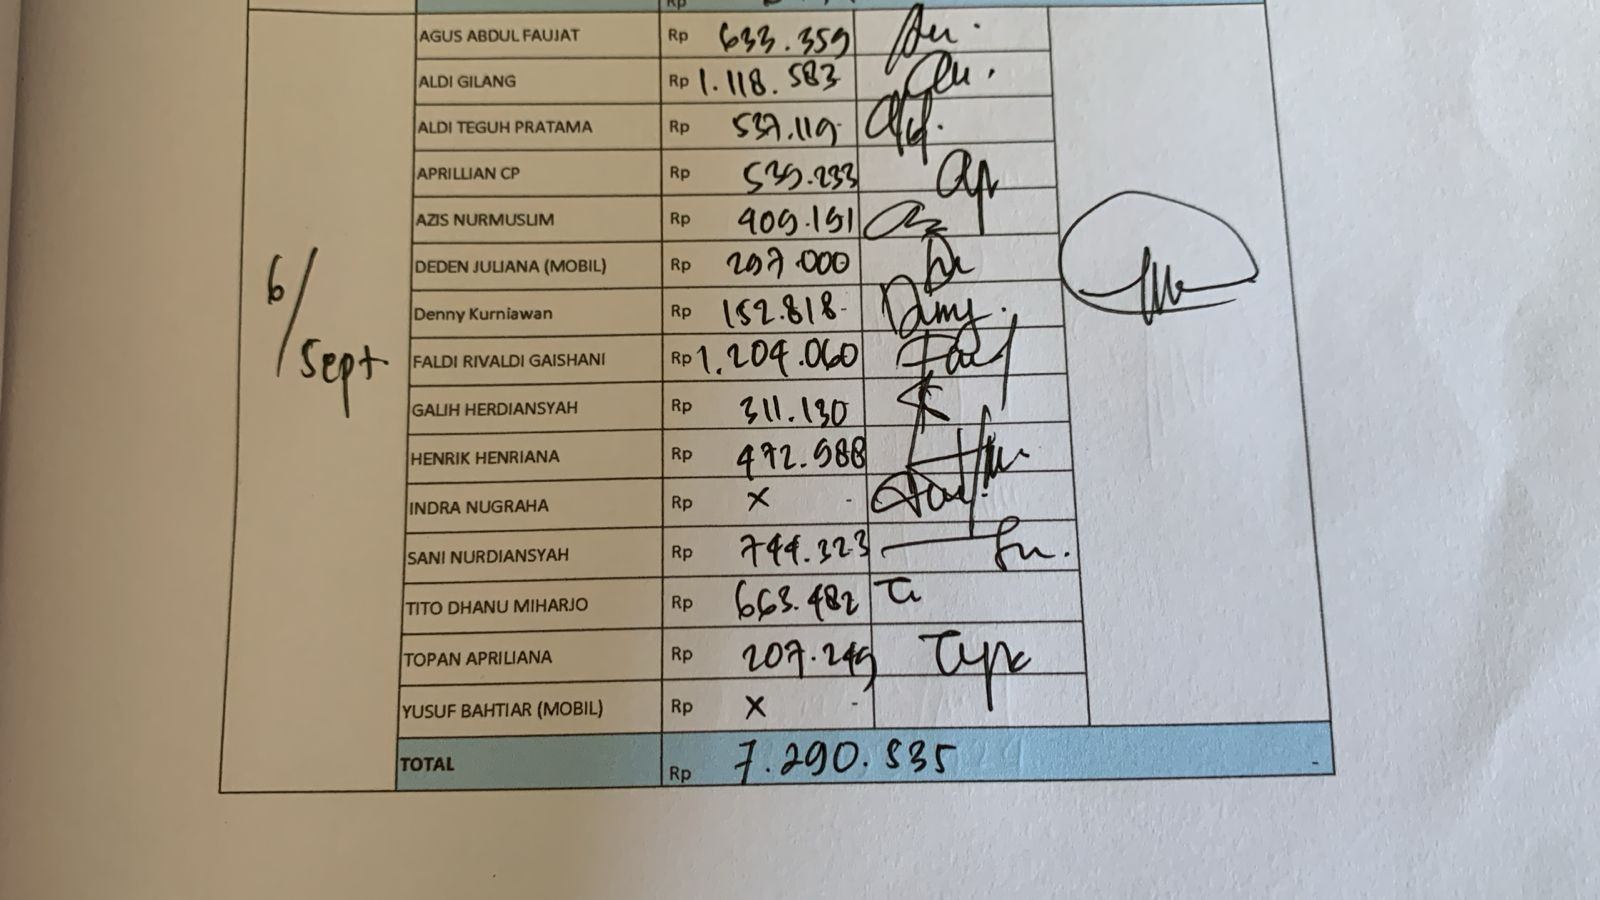 Rp
AGUS ABDUL FAUJAT Rp 633.359
ALDI GILANG Rp 1.118.583
ALDI TEGUH PRATAMA Rp 537.119
APRILLIAN CP Rp 539.233
AZIS NURMUSLIM Rp 409.191
DEDEN JULIANA (MOBIL) Rp 297.000
Denny Kurniawan Rp 152.818
FALDI RIVALDI GAISHANI Rp 1.204.060
GALIH HERDIANSYAH Rp 311.130
HENRIK HENRIANA Rp 472.988
INDRA NUGRAHA Rp x -
SANI NURDIANSYAH Rp 744.323
TITO DHANU MIHARJO Rp 663.482
TOPAN APRILIANA Rp 207.249
YUSUF BAHTIAR (MOBIL) Rp x -
6/Sept
TOTAL Rp 7.290.535 -